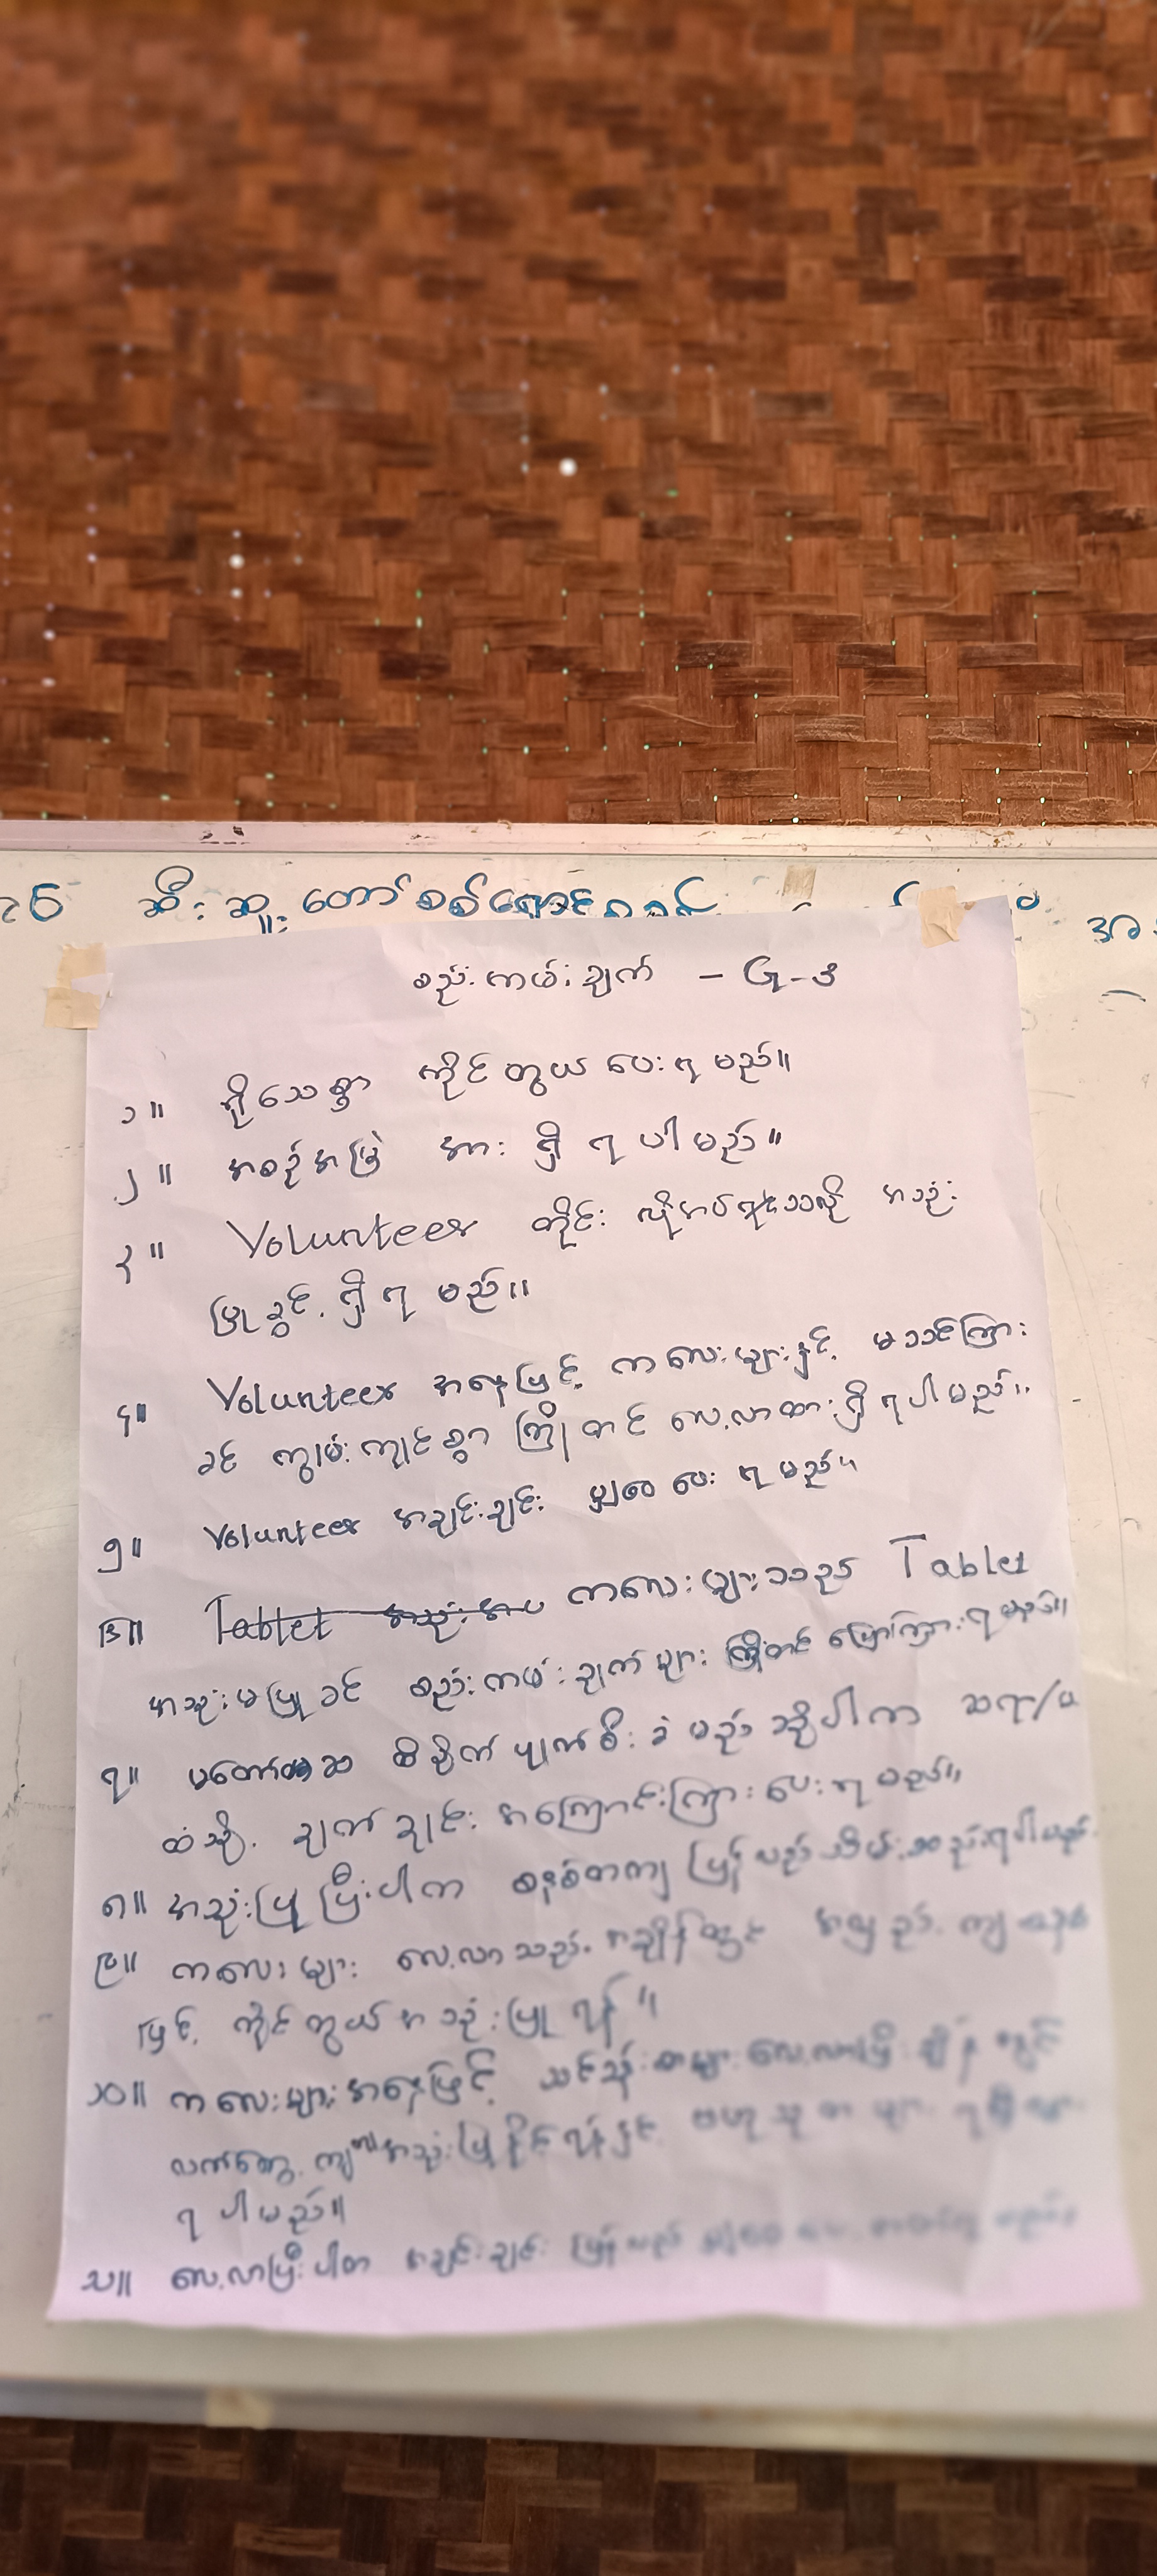 ဆီးဆူးတော်စစ်ရောင်
စည်းကမ်းချက် - G-3
၁။ ရိုသေစွာ ကိုင်တွယ်ပေးရမည်။
၂။ အစဉ်အမြဲ အားရှိရပါမည်။
၃။ Volunteer တိုင်း လိုအပ်သလို အသုံး
ပြုခွင့်ရှိရမည်။
၄။ Volunteer အနေဖြင့် ကလေးများနှင့် မသင်ကြား
ခင် ကျွမ်းကျင်စွာ ကြိုတင် လေ့လာထားရှိရပါမည်။
၅။ Volunteer အချင်းချင်း မျှဝေပေးရမည်။
၆။ Tablet အသုံးအပ ကလေးများသည် Tablet
အသုံးမပြုခင် စည်းကမ်းချက်များ ကြိုတင်ပြောကြားရမည်။
၇။ မတော်တဆ ထိခိုက်ပျက်စီးခဲ့မည်ဆိုပါက ဆရာ/မ
ထံသို့ ချက်ချင်း အကြောင်းကြားပေးရမည်။
၈။ အသုံးပြုပြီးပါက စနစ်တကျ ပြန်လည်သိမ်းဆည်းရပါမည်
၉။ ကလေးများ လေ့လာသည့်အချိန်တွင် စနစ်
ဖြင့် ကိုင်တွယ်အသုံးပြုရန်။
၁၀။ ကလေးများအနေဖြင့် လေ့လာပြီး
လက်တွေ့ကျကျအသုံးပြုနိုင်ရန်နှင့် ဗဟုသုတများ
ရပါမည်။
၁၁။ လေ့လာပြီးပါက အချင်းချင်း ပြန်လည်